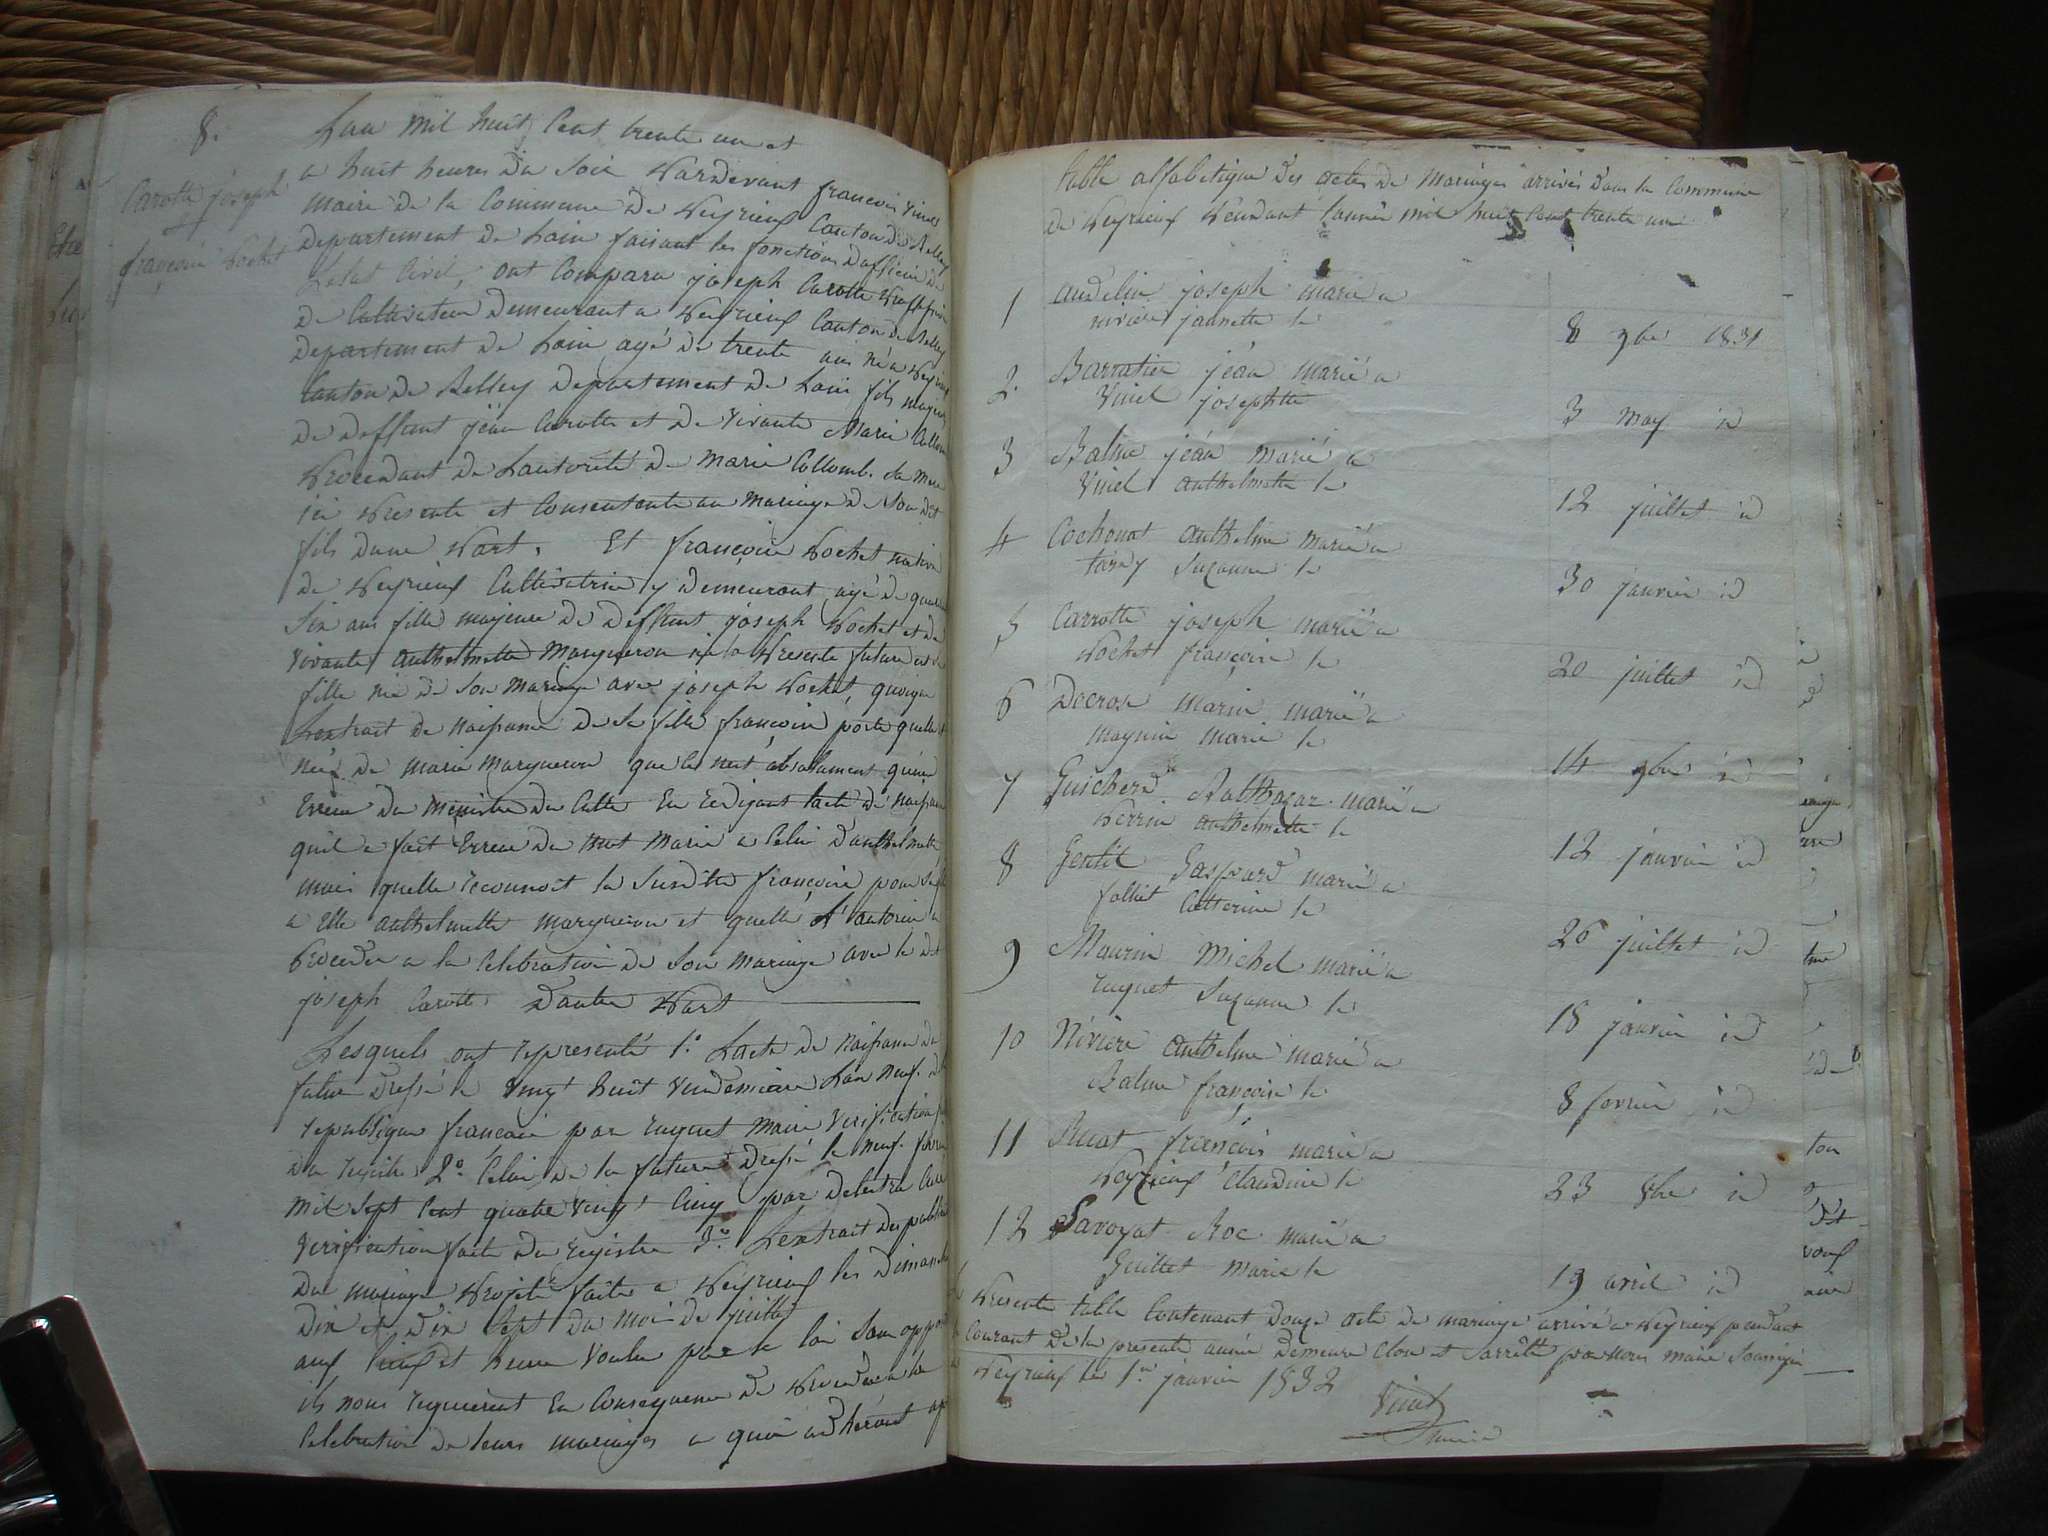 8.
Carotte joseph
et
françoise Pochet
Lan mil huit Cent trente un et
a huit heures du Soir Pardevant françois Vinel
maire de la Commune de Peyrieux Canton de Belley
departement de Lain faisant les fonctions dofficier de
Letat Civil, ont Comparu joseph Carotte
de Cultivateur demeurant a Peyrieux Canton de Belley
departement de Lain agé de trente ans né a Peyrieux
Canton de Belley departement de Lain fils majeur
de deffunt jéan Carotte et de vivante Marie Collomb
Procedant de Lautorité de marie Collomb. sa mere
ici Presente et Consentente au mariage de Son dit
fils dune Part. Et françoise Pochet native
de Peyrieux Cultivatrice y demeurant agé de quarante
Six ans fille majeure de deffunt joseph Pochet et de
vivante anthelmette Margueron ici Presente future
fille née de Son mariage avec joseph Pochet, quoique
Lextrait de naissance de Sa fille françoise porte quelle
née de marie margueron que Ce nest absolument quune
Erreur du Ministre du Culte En redigant lacte de naissance
quil a fait Erreur du mot Marie a Celui danthelmette
mais quelle reconnoit la Susditte françoise pour Sa fille
a Elle anthelmette margueron et quelle L'autorise a
Proceder a la Celebration de Son mariage avec le dit
joseph Carotte dautre Part
Lesquels ont representé 1.º Lacte de naissance du
futur dressé le vingt huit vendemiaire Lan neuf de la
republique francaise par ruquet maire verification
du registre 2.º Celui de la future dressé le neuf fevrier
mil Sept Cent quatre vingt Cinq par delestra Curé
verification faite du registre 3.º Lextrait des publications
du mariage Projeté faite a Peyrieux les dimanches
Dix et Dix Sept du mois de juillet
aux Lieux et heure voulue par la loi Sans opposition
ils nous requierent En Consequence de Proceder a la
Celebration de leurs mariages a quoi adhérant
table alfabetique des actes de Mariages arrivés dans la Commune
de Peyrieux Pendant lannée mil huit Cent trente un
1 audelin joseph marié a
riviere jannette le 8 9bre 1831
2. Barratier jéan marié a
Vinel josephtte 3 may id
3 Balme jéan marié a
Vinel anthelmette le 12 juillet id
4 Cochonat anthelme marié a
tardy Suzanne le 30 janvier id
5 Carrotte joseph marié a
Pochet françoise le 20 juillet id
6 Decrose marin marié a
maynin marie le 14 9bre id
7 Guicherd Balthazar marié a
Perrin anthelmette le 12 janvier id
8 Gentil Gaspard marié a
folliet Catterine le 26 juillet id
9 Maurin Michel marié a
ruquet Suzanne le 18 janvier id
10 Riviere anthelme marié a
Balme françoise le 8 fevrier id
11 Ruat françois marié a
Peyrieux Claudine le 23 8bre id
12 Savoyat Roc marié a
Guillet marie le 19 avril id
Presente table Contenant douze acte de mariage arrivé a Peyrieux pendant
Courant de la presente année demeure Clos et Sarrêtte par Nous maire Soussigné
Peyrieux le 1.er janvier 1832
Vinel
maire